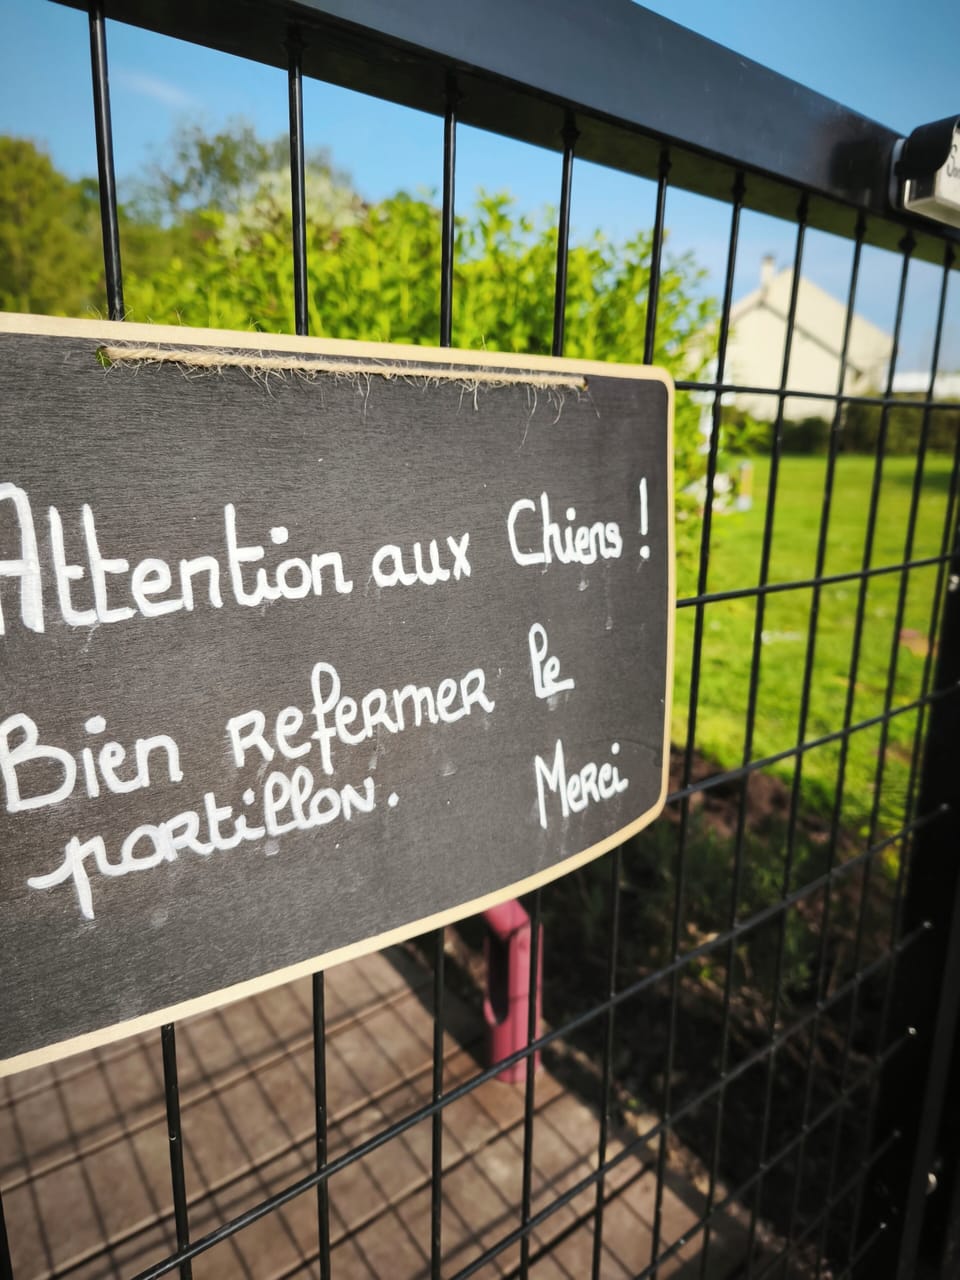 Attention aux Chiens !
Bien refermer le
portillon. Merci